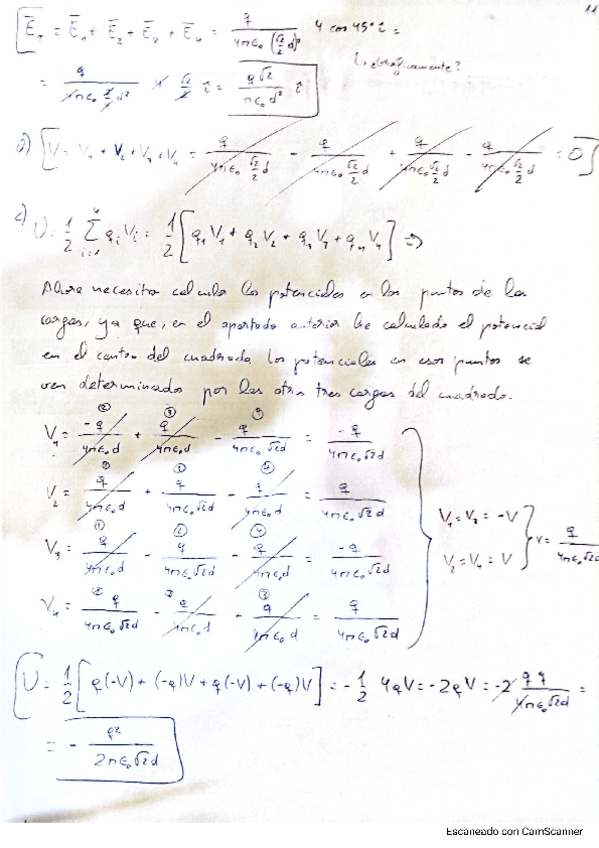 11
E̅_T = E̅_1 + E̅_2 + E̅_3 + E̅_4 = q / (4πε_0 (√2/2 d)²) 4 cos 45° î =
↳ ¿gráficamente?
= q / (4πε_0 2/4 d²) 4 √2/2 î = q√2 / (πε_0 d²) î
b) V = V_1 + V_2 + V_3 + V_4 = q / (4πε_0 √2/2 d) - q / (4πε_0 √2/2 d) + q / (4πε_0 √2/2 d) - q / (4πε_0 √2/2 d) = 0
c) U = 1/2 Σ_{i=1}^{4} q_i V_i = 1/2 [q_1 V_1 + q_2 V_2 + q_3 V_3 + q_4 V_4] ⇒
Ahora necesito calcular los potenciales en los puntos de las
cargas, ya que, en el apartado anterior he calculado el potencial
en el centro del cuadrado. Los potenciales en esos puntos se
ven determinados por las otras tres cargas del cuadrado.
V_1 = -q / (4πε_0 d) + q / (4πε_0 √2 d) - q / (4πε_0 d) = -q / (4πε_0 √2 d)
V_2 = q / (4πε_0 d) + q / (4πε_0 √2 d) - q / (4πε_0 d) = q / (4πε_0 √2 d)
V_1 = V_3 = -V
V = q / (4πε_0 √2 d
V_3 = q / (4πε_0 d) - q / (4πε_0 √2 d) - q / (4πε_0 d) = -q / (4πε_0 √2 d)
V_2 = V_4 = V
V_4 = q / (4πε_0 √2 d) - q / (4πε_0 d) + q / (4πε_0 d) = q / (4πε_0 √2 d)
U = 1/2 [q(-V) + (-q)V + q(-V) + (-q)V] = -1/2 4qV = -2qV = -2 q q / (4πε_0 √2 d) =
= - q² / (2πε_0 √2 d)
Escaneado con CamScanner